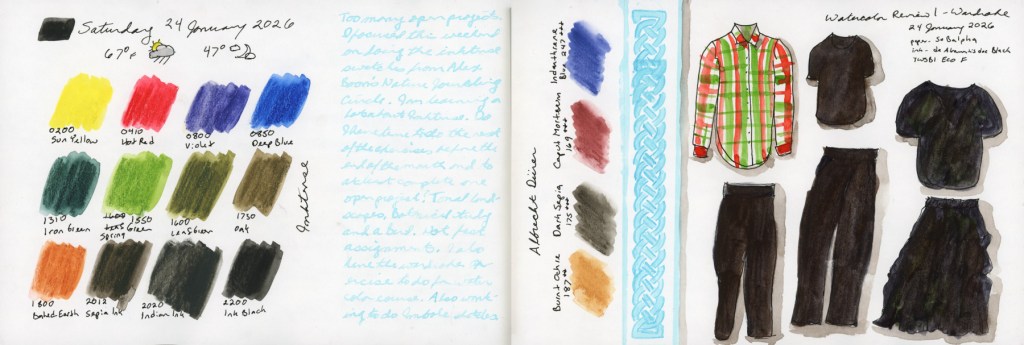 Saturday 24 January 2026
67°F 47°
0200
Sun Yellow
0410
Hot Red
0800
Violet
0850
Deep Blue
1310
Iron Green
1550
Spring Green
1600
Leaf Green
1730
Oak
1800
Baked Earth
2012
Sepia Ink
2020
Indian Ink
2200
Ink Black
Inktense
Too many open projects.
I focused this weekend
on doing the inktense
swatches from Alex
Boon's Nature Journaling
Circle. I'm learning a
lot about Inktense.
the rest
of the exercises before the
end of the month and to
at least complete one
open project: Tonal land-
scapes, Botanical study
and a bird.
assignments. I also
have the wardrobe ex-
ercise to do for water
color course. Also work-
ing to do Imbolc sketches
Albrecht Dürer
Indanthrene
Blue 247 ***
Caput Mortuum
169 ***
Dark Sepia
175 ***
Burnt Ochre
187 **
Watercolor Remix 1 - Wardrobe
24 January 2026
paper - S&B alpha
ink - de Atramentis doc Black
TWSBI Eco F